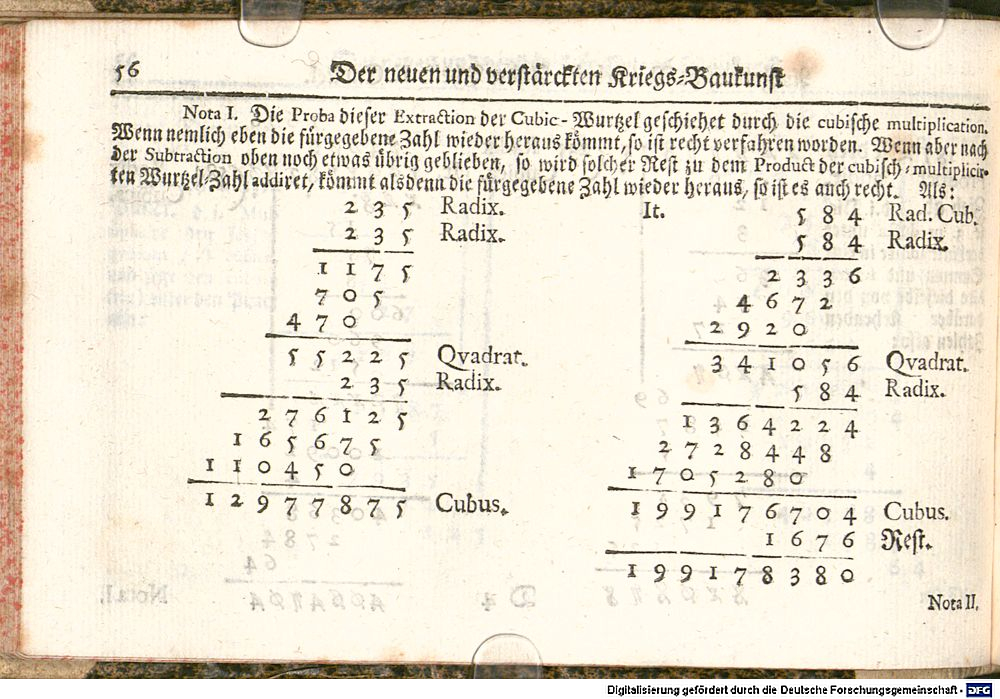 56 Der neuen und verstärckten Kriegs-Baukunst
Nota I. Die Proba dieser Extraction der Cubic-Wurtzel geschiehet durch die cubische multiplication.
Wenn nemlich eben die fürgegebene Zahl wieder heraus kömmt, so ist recht verfahren worden. Wenn aber nach
der Subtraction oben noch etwas übrig geblieben, so wird solcher Rest zu dem Product der cubisch-multiplicir-
ten Wurtzel-Zahl addiret, kömmt alsdenn die fürgegebene Zahl wieder heraus, so ist es auch recht. Als:
2 3 5 Radix.
2 3 5 Radix.
1 1 7 5
7 0 5
4 7 0
5 5 2 2 5 Qvadrat.
2 3 5 Radix.
2 7 6 1 2 5
1 6 5 6 7 5
1 1 0 4 5 0
1 2 9 7 7 8 7 5 Cubus.
It. 5 8 4 Rad. Cub.
5 8 4 Radix.
2 3 3 6
4 6 7 2
2 9 2 0
3 4 1 0 5 6 Qvadrat.
5 8 4 Radix.
1 3 6 4 2 2 4
2 7 2 8 4 4 8
1 7 0 5 2 8 0
1 9 9 1 7 6 7 0 4 Cubus.
1 6 7 6 Rest.
1 9 9 1 7 8 3 8 0
Nota II.
Digitalisierung gefördert durch die Deutsche Forschungsgemeinschaft - DFG